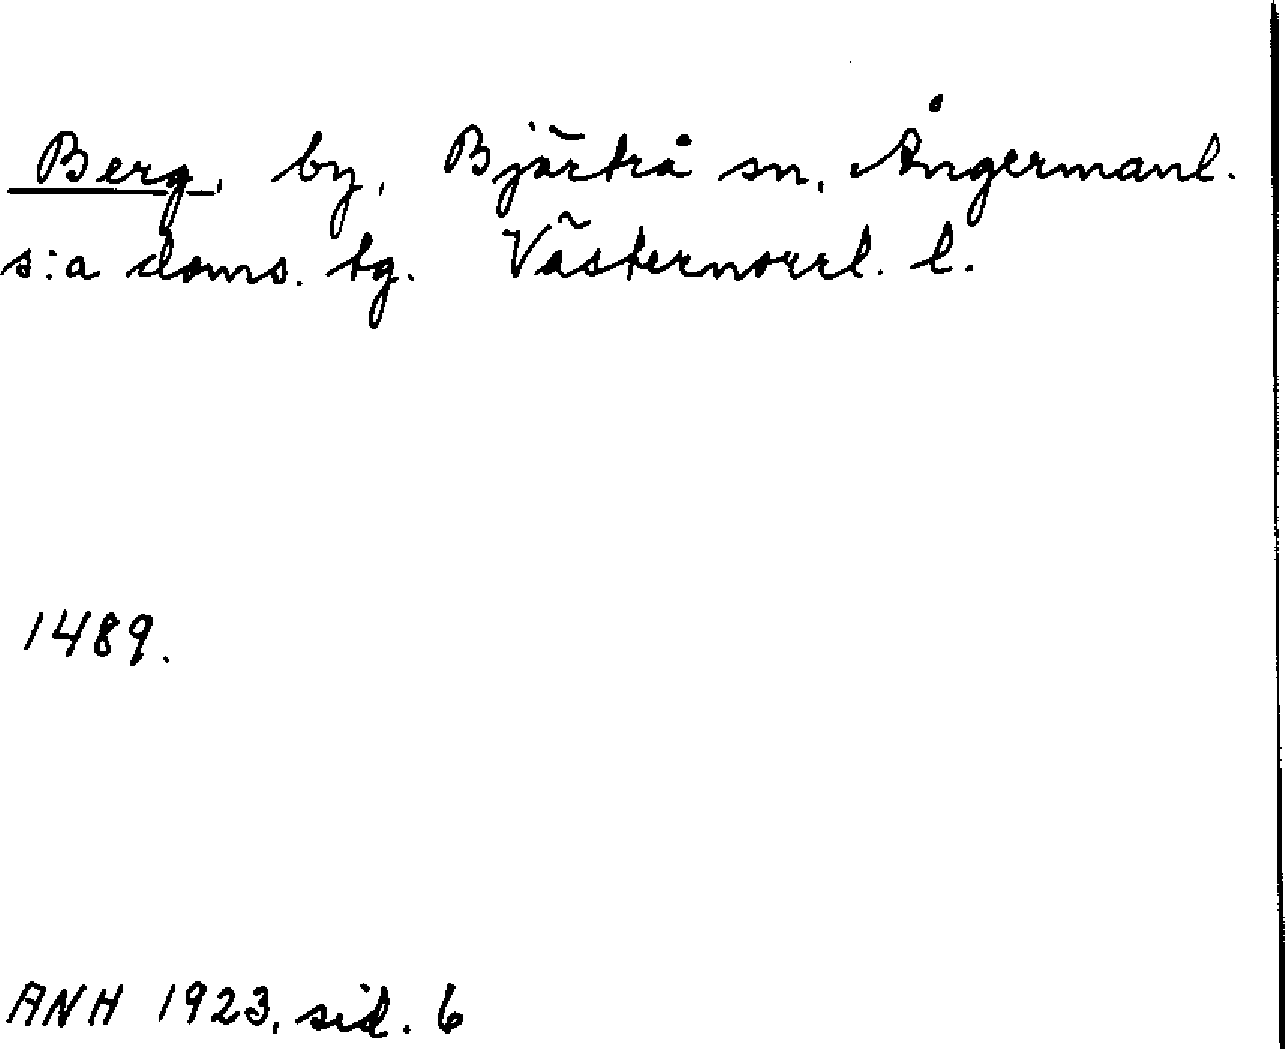 Berg, by, Bjärtrå sn, Ångermanl.
s:a doms. tg. Västernorrl. l.
1489.
ANH 1923, sid. 6